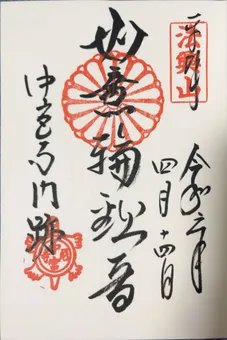 法興山
如意輪観音
中宮寺門跡
令和六年
四月十四日